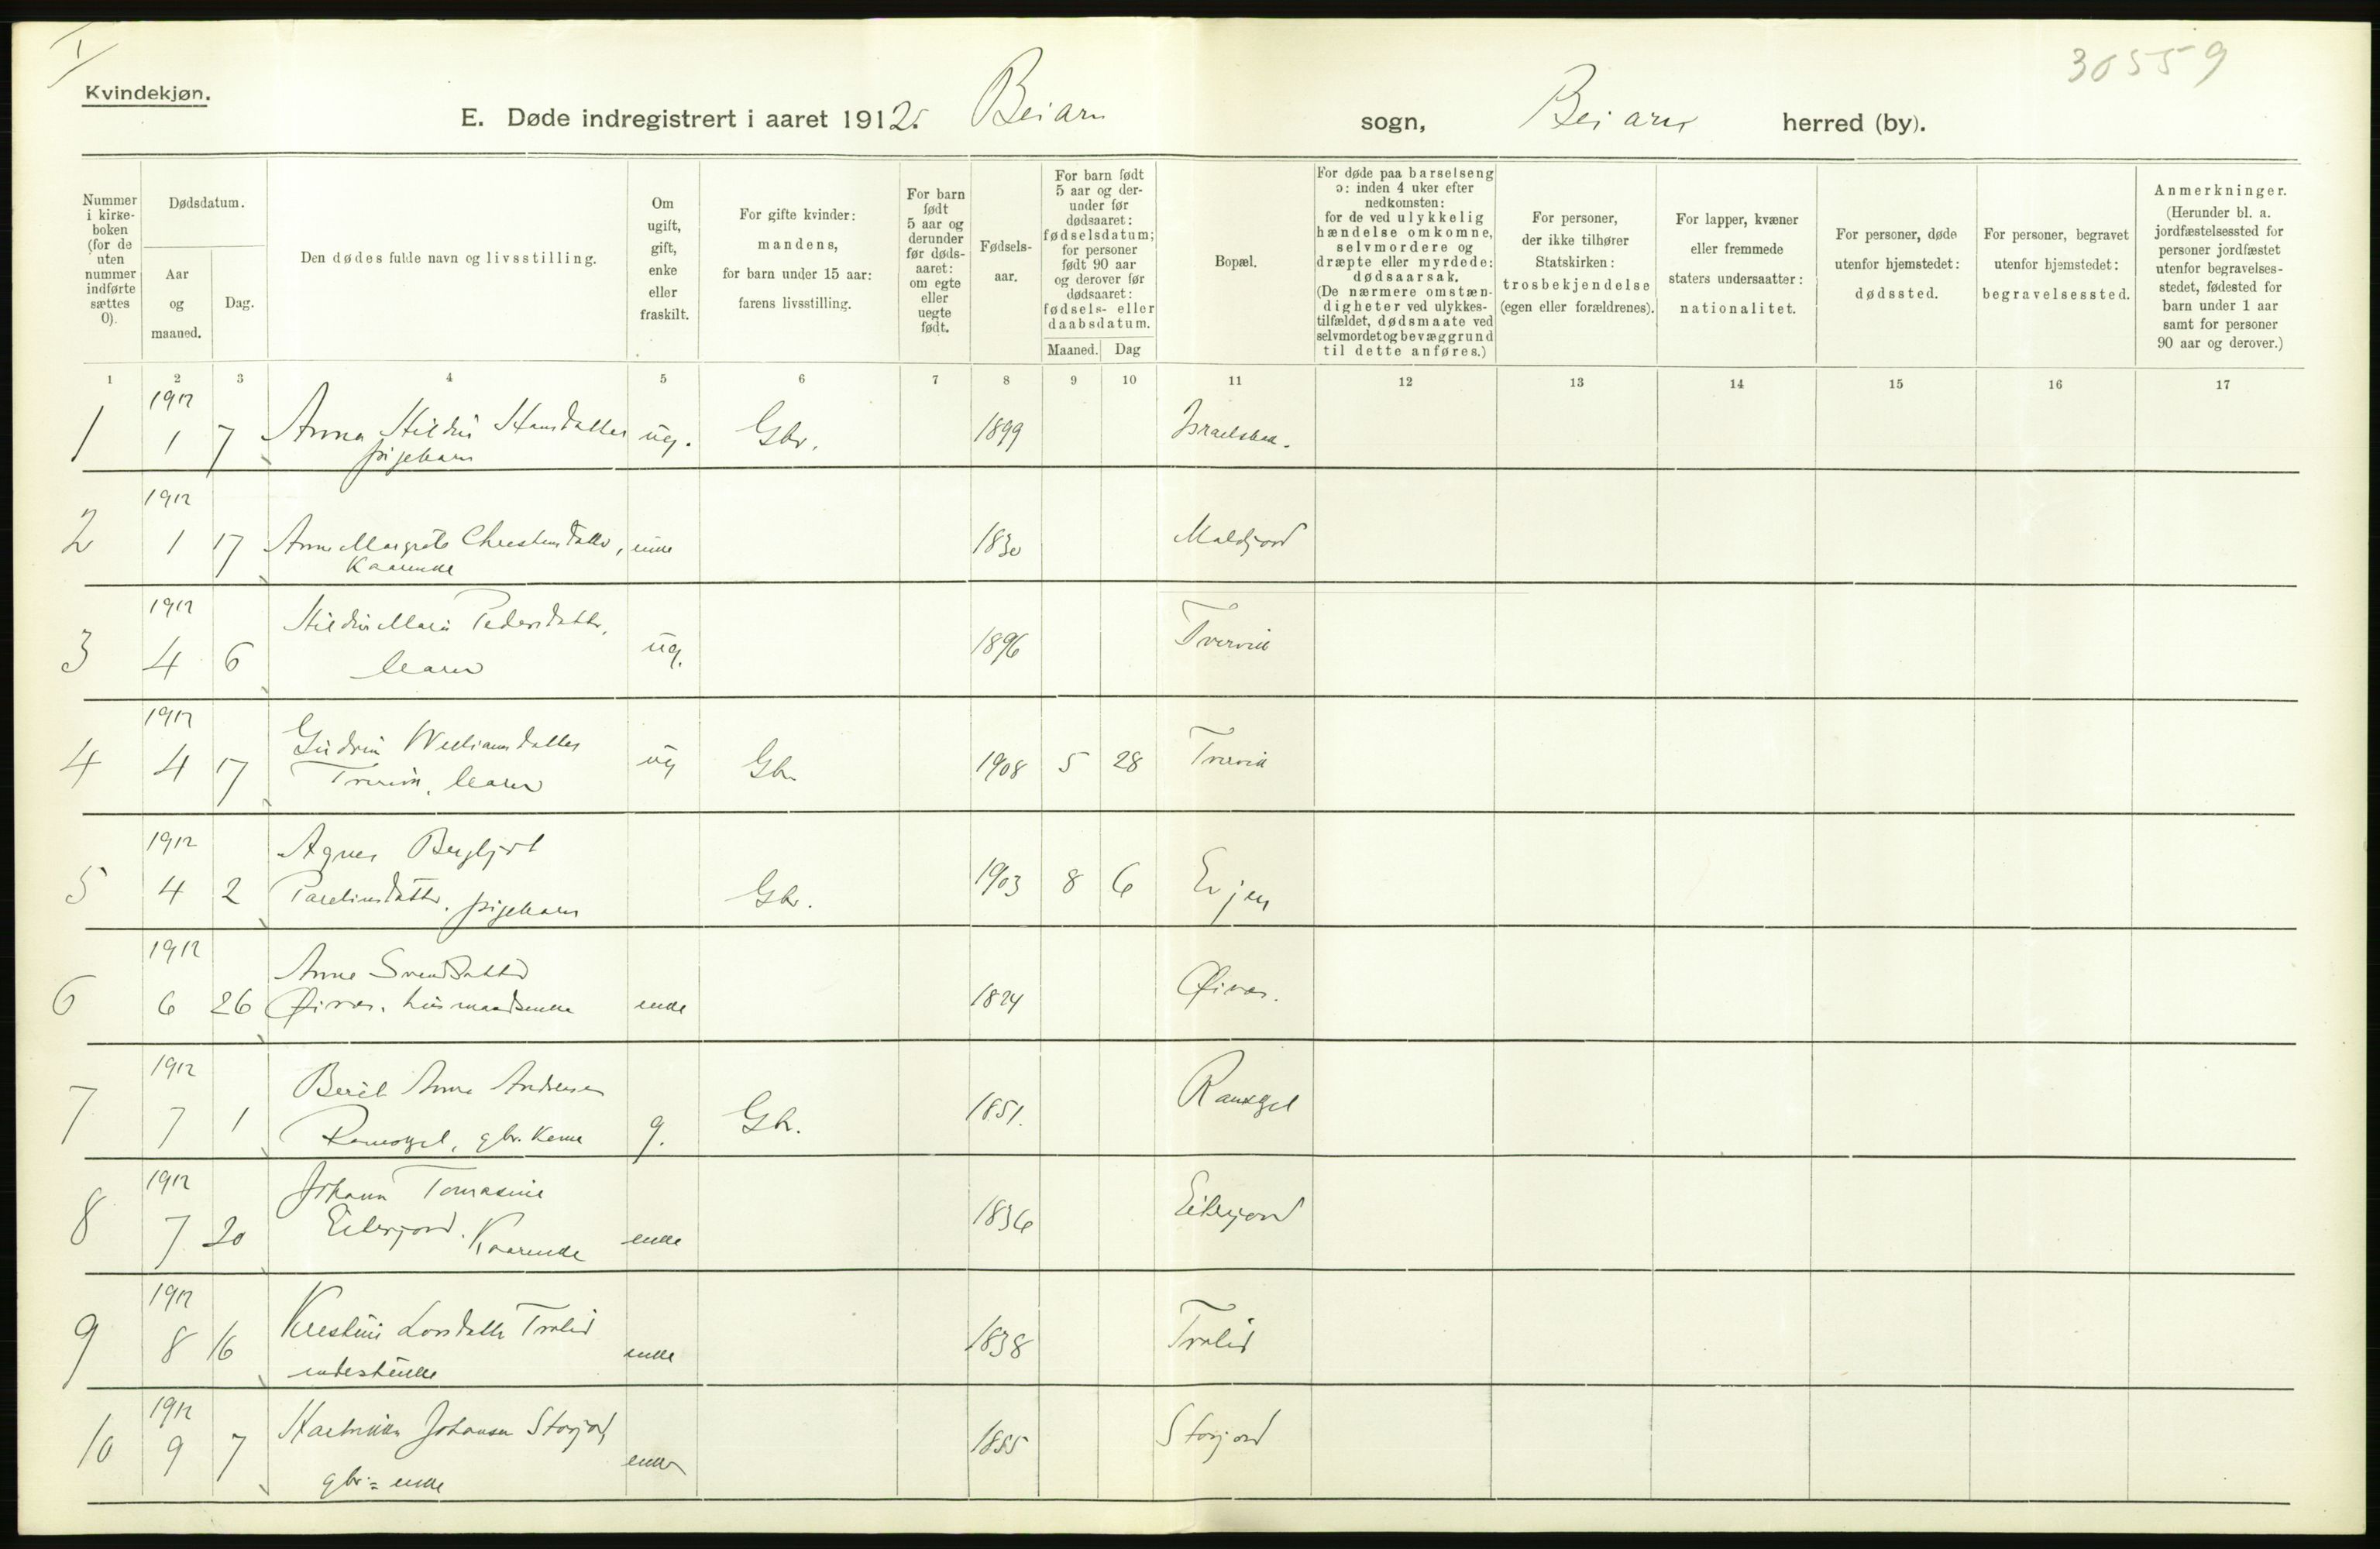 I
30559
Kvindekjøn.
E. Døde indregistrert i aaret 1912. Beiarn sogn, Beiarn herred (by).
Nummer i kirkeboken (for de uten nummer indførte sættes 0).
Dødsdatum.
Aar og maaned.
Dag.
Den dødes fulde navn og livsstilling.
Om ugift, gift, enke eller fraskilt.
For gifte kvinder: mandens, for barn under 15 aar: farens livsstilling.
For barn født 5 aar og derunder før dødsaaret: om egte eller uegte født.
Fødselsaar.
For barn født 5 aar og derunder før dødsaaret: fødselsdatum; for personer født 90 aar og derover før dødsaaret: fødsels- eller daabsdatum.
Maaned. Dag
Bopæl.
For døde paa barselseng ɔ: inden 4 uker efter nedkomsten: for de ved ulykkelig hændelse omkomne, selvmordere og dræpte eller myrdede: dødsaarsak. (De nærmere omstændigheter ved ulykkestilfældet, dødsmaate ved selvmordet og bevæggrund til dette anføres.)
For personer, der ikke tilhører Statskirken: trosbekjendelse (egen eller forældrenes).
For lapper, kvæner eller fremmede staters undersaatter: nationalitet.
For personer, døde utenfor hjemstedet: dødssted.
For personer, begravet utenfor hjemstedet: begravelsessted.
Anmerkninger. (Herunder bl. a. jordfæstelsessted for personer jordfæstet utenfor begravelsesstedet, fødested for barn under 1 aar samt for personer 90 aar og derover.)
1 2 3 4 5 6 7 8 9 10 11 12 13 14 15 16 17
1912
1 1 7 Anna Hildur Hansdatter ug. Gbr. 1899
pigebarn
1912
2 1 17 Anne Margrete Christensdatter, enke 1830 Moldjord
Kaarenke
1912
Hildur Marie Pedersdatter,
3 4 6 barn ug. 1896 Tvervik
1912
Gudrun Williamsdatter
4 4 17 Tvervik, barn ug Gbr. 1908 5 28 Tvervik
1912
Agnes Bergljot
5 4 2 pigebarn Gbr. 1903 8 6 Evjen
1912
Anne Svendsdatter
6 6 26 Øines. husmandsenke enke 1824 Øines.
1912
Berit Anna Andersen
7 7 1 gbr. kone g. Gbr. 1851.
1912
Johanna Tomasine
8 7 20 Eiterjord. Kaarenke enke 1836 Eiterjord
1912
9 8 16 Larsdatter Trolid enke 1838 Trolid
1912
10 9 7 Johansen Storjord, enke 1855 Storjord
gbr.= enke